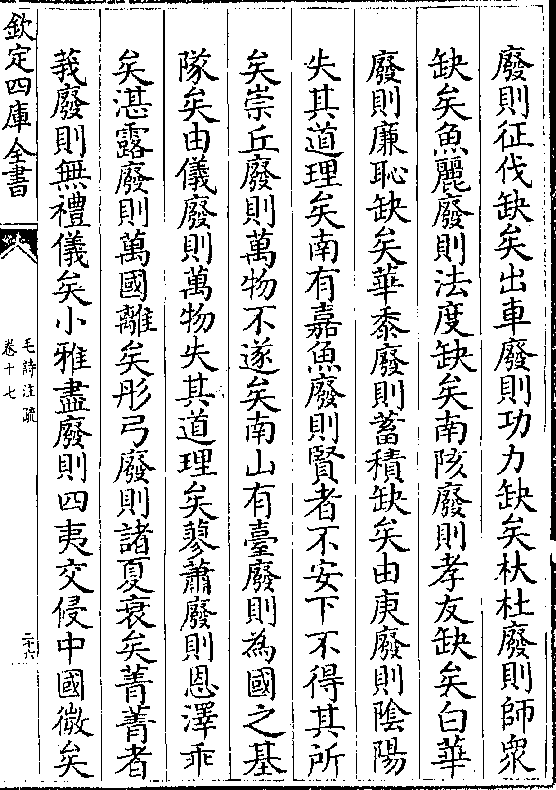 廢則征伐缺矣出車廢則功力缺矣杕杜廢則師衆
缺矣魚麗廢則法度缺矣南陔廢則孝友缺矣白華
廢則廉恥缺矣華黍廢則蓄積缺矣由庚廢則陰陽
失其道理矣南有嘉魚廢則賢者不安下不得其所
矣崇丘廢則萬物不遂矣南山有臺廢則為國之基
隊矣由儀廢則萬物失其道理矣蓼蕭廢則恩澤乖
矣湛露廢則萬國離矣彤弓廢則諸夏衰矣菁菁者
莪廢則無禮儀矣小雅盡廢則四夷交侵中國微矣
欽定四庫全書
毛詩注疏
卷十七
二十六